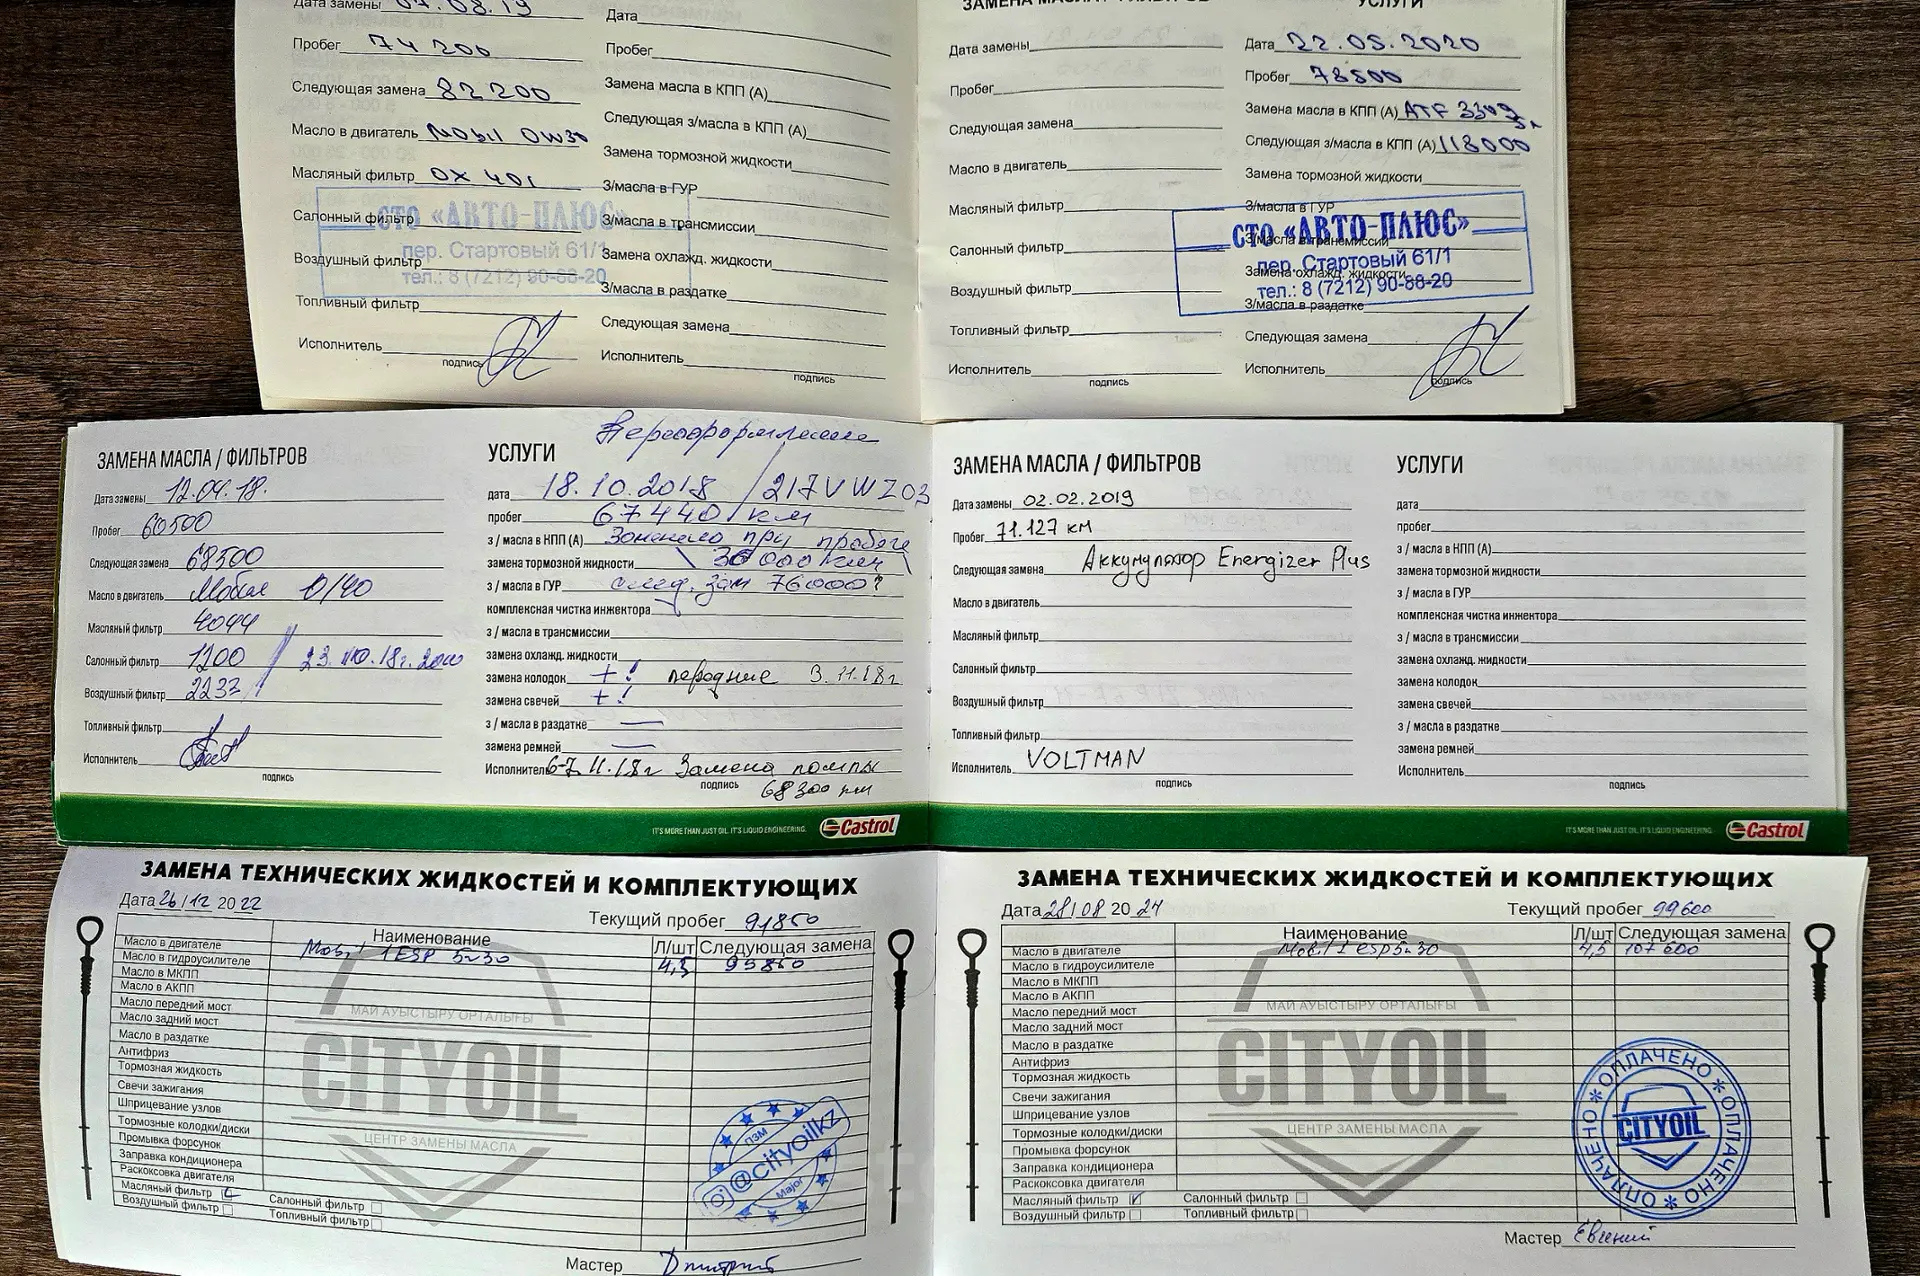 Дата замены 07.08.19
Пробег 74 200
Следующая замена 82 200
Масло в двигатель Mobil 0W30
Масляный фильтр OX 401
Салонный фильтр
Воздушный фильтр
Топливный фильтр
Исполнитель
подпись
Дата
Пробег
Замена масла в КПП (А)
Следующая з/масла в КПП (А)
Замена тормозной жидкости
З/масла в ГУР
З/масла в трансмиссии
Замена охлажд. жидкости
З/масла в раздатке
Следующая замена
Исполнитель
подпись
СТО «АВТО-ПЛЮС»
пер. Стартовый 61/1
тел.: 8 (7212) 90-88-20
Дата замены
Пробег
Следующая замена
Масло в двигатель
Масляный фильтр
Салонный фильтр
Воздушный фильтр
Топливный фильтр
Исполнитель
подпись
УСЛУГИ
Дата 22.05.2020
Пробег 78500
Замена масла в КПП (А) ATF 3309
Следующая з/масла в КПП (А) 118000
Замена тормозной жидкости
З/масла в ГУР
З/масла в трансмиссии
Замена охлажд. жидкости
З/масла в раздатке
Следующая замена
Исполнитель
подпись
СТО «АВТО-ПЛЮС»
пер. Стартовый 61/1
тел.: 8 (7212) 90-88-20
ЗАМЕНА МАСЛА / ФИЛЬТРОВ
Дата замены 12.04.18.
Пробег 60500
Следующая замена 68500
Масло в двигатель Мобил 0/40
Масляный фильтр 4044
Салонный фильтр 1200 / 23.10.18г.
Воздушный фильтр 2232
Топливный фильтр
Исполнитель
подпись
Переоформление
УСЛУГИ
дата 18.10.2018 / 217VWZ03
пробег 67440 км
з / масла в КПП (А) Заменено при пробеге
замена тормозной жидкости 36000 км
з / масла в ГУР след. зам 76000?
комплексная чистка инжектора
з / масла в трансмиссии
замена охлажд. жидкости
замена колодок +! передние 3.11.18г
замена свечей +!
з / масла в раздатке —
замена ремней —
Исполнитель 6-7.11.18г Замена помпы
подпись 68300 км
IT'S MORE THAN JUST OIL. IT'S LIQUID ENGINEERING.
Castrol
ЗАМЕНА МАСЛА / ФИЛЬТРОВ
Дата замены 02.02.2019
Пробег 71.127 км
Следующая замена Аккумулятор Energizer Plus
Масло в двигатель
Масляный фильтр
Салонный фильтр
Воздушный фильтр
Топливный фильтр
Исполнитель VOLTMAN
подпись
УСЛУГИ
дата
пробег
з / масла в КПП (А)
замена тормозной жидкости
з / масла в ГУР
комплексная чистка инжектора
з / масла в трансмиссии
замена охлажд. жидкости
замена колодок
замена свечей
з / масла в раздатке
замена ремней
Исполнитель
подпись
IT'S MORE THAN JUST OIL. IT'S LIQUID ENGINEERING.
Castrol
ЗАМЕНА ТЕХНИЧЕСКИХ ЖИДКОСТЕЙ И КОМПЛЕКТУЮЩИХ
Дата 26/12 2022
Текущий пробег 91850
Наименование Л/шт Следующая замена
Масло в двигателе Mobil 1 ESP 5w30 4,5 99860
Масло в гидроусилителе
Масло в МКПП
Масло в АКПП
Масло передний мост
Масло задний мост
Масло в раздатке
Антифриз
Тормозная жидкость
Свечи зажигания
Шприцевание узлов
Тормозные колодки/диски
Промывка форсунок
Заправка кондиционера
Раскоксовка двигателя
Масляный фильтр Салонный фильтр
Воздушный фильтр Топливный фильтр
МАЙ АУЫСТЫРУ ОРТАЛЫҒЫ
CITYOIL
ЦЕНТР ЗАМЕНЫ МАСЛА
ПЗМ
@cityoilkz
Major
Мастер Дмитрий
ЗАМЕНА ТЕХНИЧЕСКИХ ЖИДКОСТЕЙ И КОМПЛЕКТУЮЩИХ
Дата 28/08 2024
Текущий пробег 99600
Наименование Л/шт Следующая замена
Масло в двигателе Mobil 1 ESP 5w30 4,5 107600
Масло в гидроусилителе
Масло в МКПП
Масло в АКПП
Масло передний мост
Масло задний мост
Масло в раздатке
Антифриз
Тормозная жидкость
Свечи зажигания
Шприцевание узлов
Тормозные колодки/диски
Промывка форсунок
Заправка кондиционера
Раскоксовка двигателя
Масляный фильтр Салонный фильтр
Воздушный фильтр Топливный фильтр
МАЙ АУЫСТЫРУ ОРТАЛЫҒЫ
CITYOIL
ЦЕНТР ЗАМЕНЫ МАСЛА
ОПЛАЧЕНО * ОПЛАЧЕНО * ОПЛАЧЕНО *
CITYOIL
Мастер Евгений